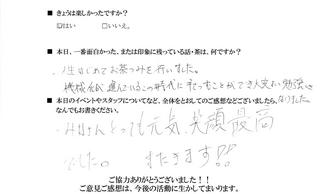 ■ きょうは楽しかったですか？
☑はい □いいえ。
■ 本日、一番面白かった、または印象に残っている話・茶は、何ですか？
生まれてはじめてお茶つみを行いました。
機械化が進んでいるこの時代に手でつむことができ大変い勉強になりました。
■ 本日のイベントやスタッフについてなど、全体をとおしてのご感想などございましたら、
なんでもお書きください。
みなさんとっても元気、笑顔最高
でした。 またきます!!
ご協力ありがとうございました！！
ご意見ご感想は、今後の活動に生かしてまいります。